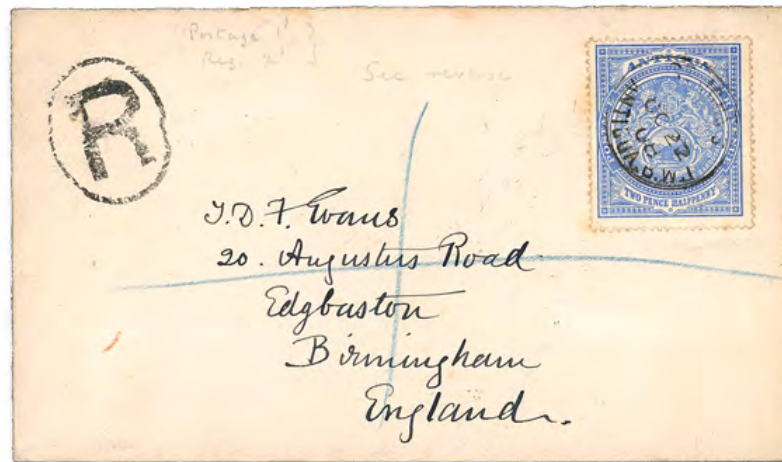 Postage 1'
Reg. 2'
See reverse
R
ANTIGUA
TWO PENCE HALFPENNY
ANTIGUA. B.W.I.
OC 22
08
J.D.F. Evans
20. Augustus Road
Edgbaston
Birmingham
England.